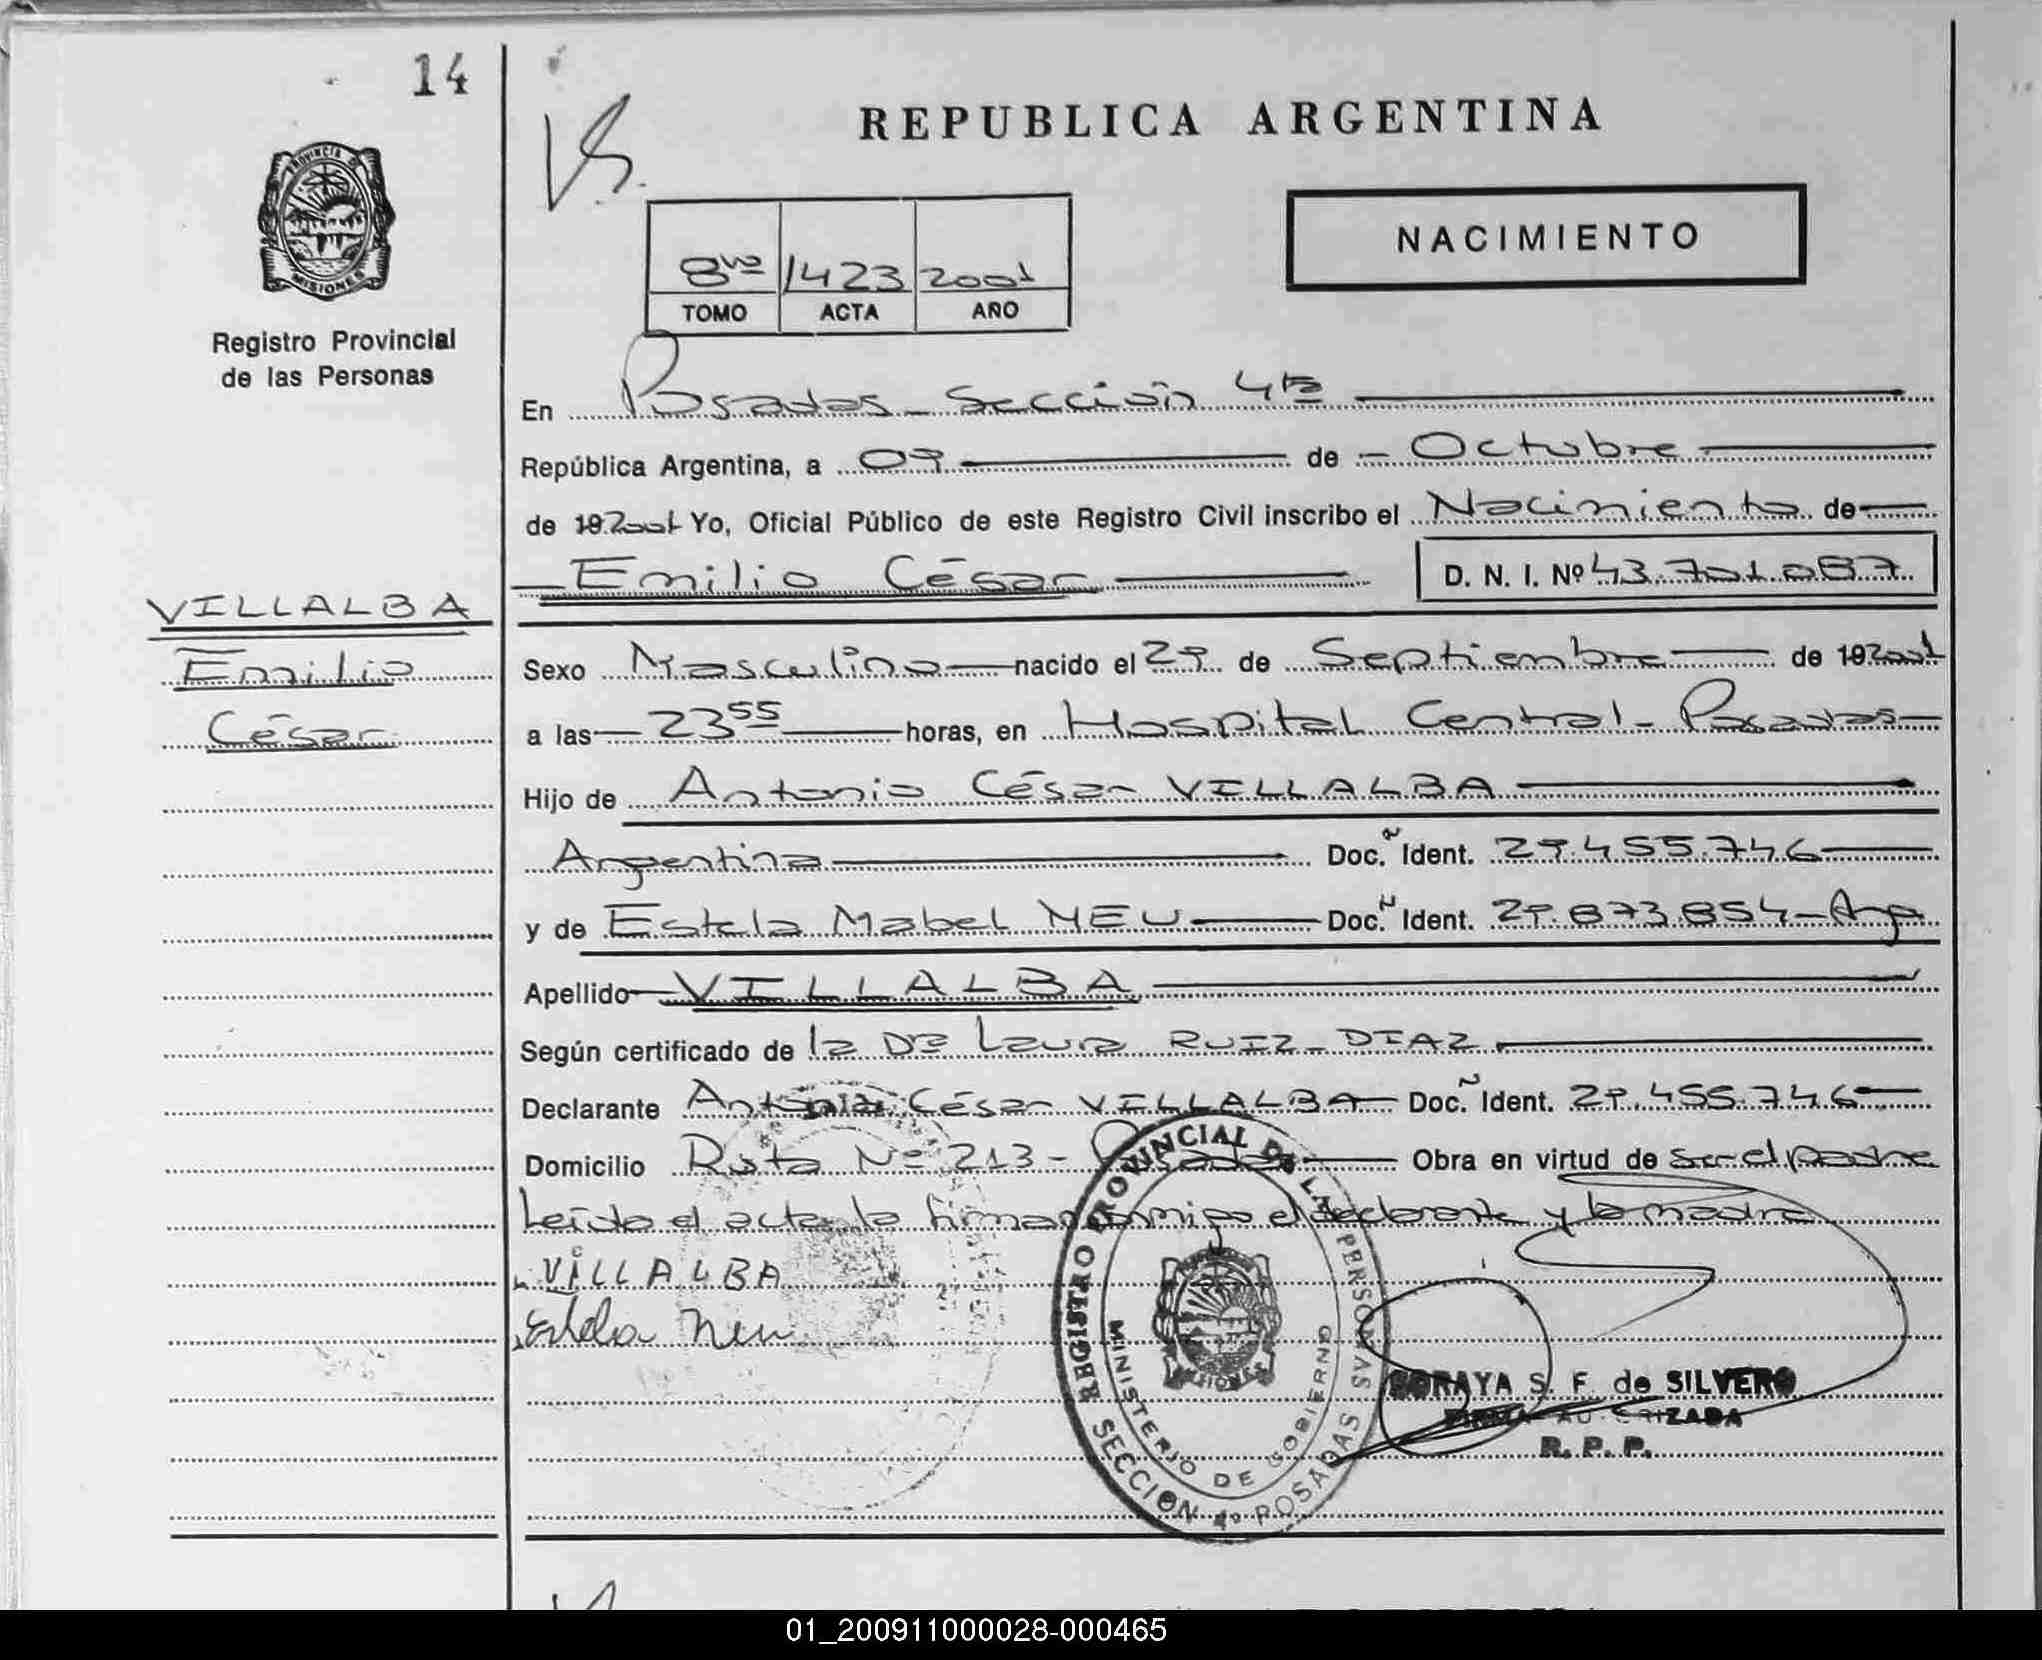 14
REPUBLICA ARGENTINA
PROVINCIA DE
MISIONES
NACIMIENTO
8vo 1423 2001
TOMO ACTA AÑO
Registro Provincial
de las Personas
En Posadas - Sección 4ta
República Argentina, a 09 de - Octubre
de 19 2001 Yo, Oficial Público de este Registro Civil inscribo el Nacimiento de
Emilio César D. N. I. Nº 43.701.087
VILLALBA
Emilio
César
Sexo Masculino nacido el 29 de Septiembre de 19 2001
a las 23 55 horas, en Hospital Central - Posadas
Hijo de Antonio César VILLALBA
Argentina Doc. Ident. 29.455.746
y de Estela Mabel NEU Doc. Ident. 29.873.854 - Arg
Apellido VILLALBA
Según certificado de la Dra Laura RUIZ DIAZ
Declarante Antonio César VILLALBA Doc. Ident. 29.455.746
Domicilio Ruta Nº 213 - Posadas Obra en virtud de ser el padre
Leída el acta la firman conmigo el declarante y la madre
VILLALBA
Estela Neu
REGISTRO PROVINCIAL DE LAS PERSONAS
MINISTERIO DE GOBIERNO
MISIONES
SECCION 4º POSADAS
SORAYA S. F. de SILVERO
FIRMA AUTORIZADA
R. P. P.
01_200911000028-000465